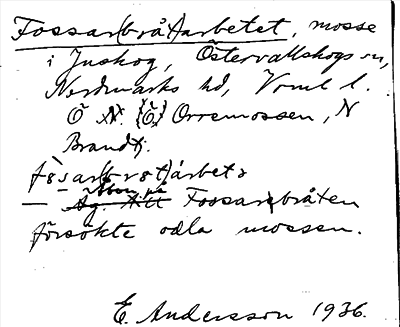 Fossar(bråt)arbetet, mosse
i Juskog, Östervallskogs sn,
Nordmarks hd, Vrml l.
Ö N. (Ö) Orremossen, N
Brandtj.
fòsar(brot)árbetə
Åbon på Fossar(bråten
försökte odla mossen.
E. Andersson 1936.